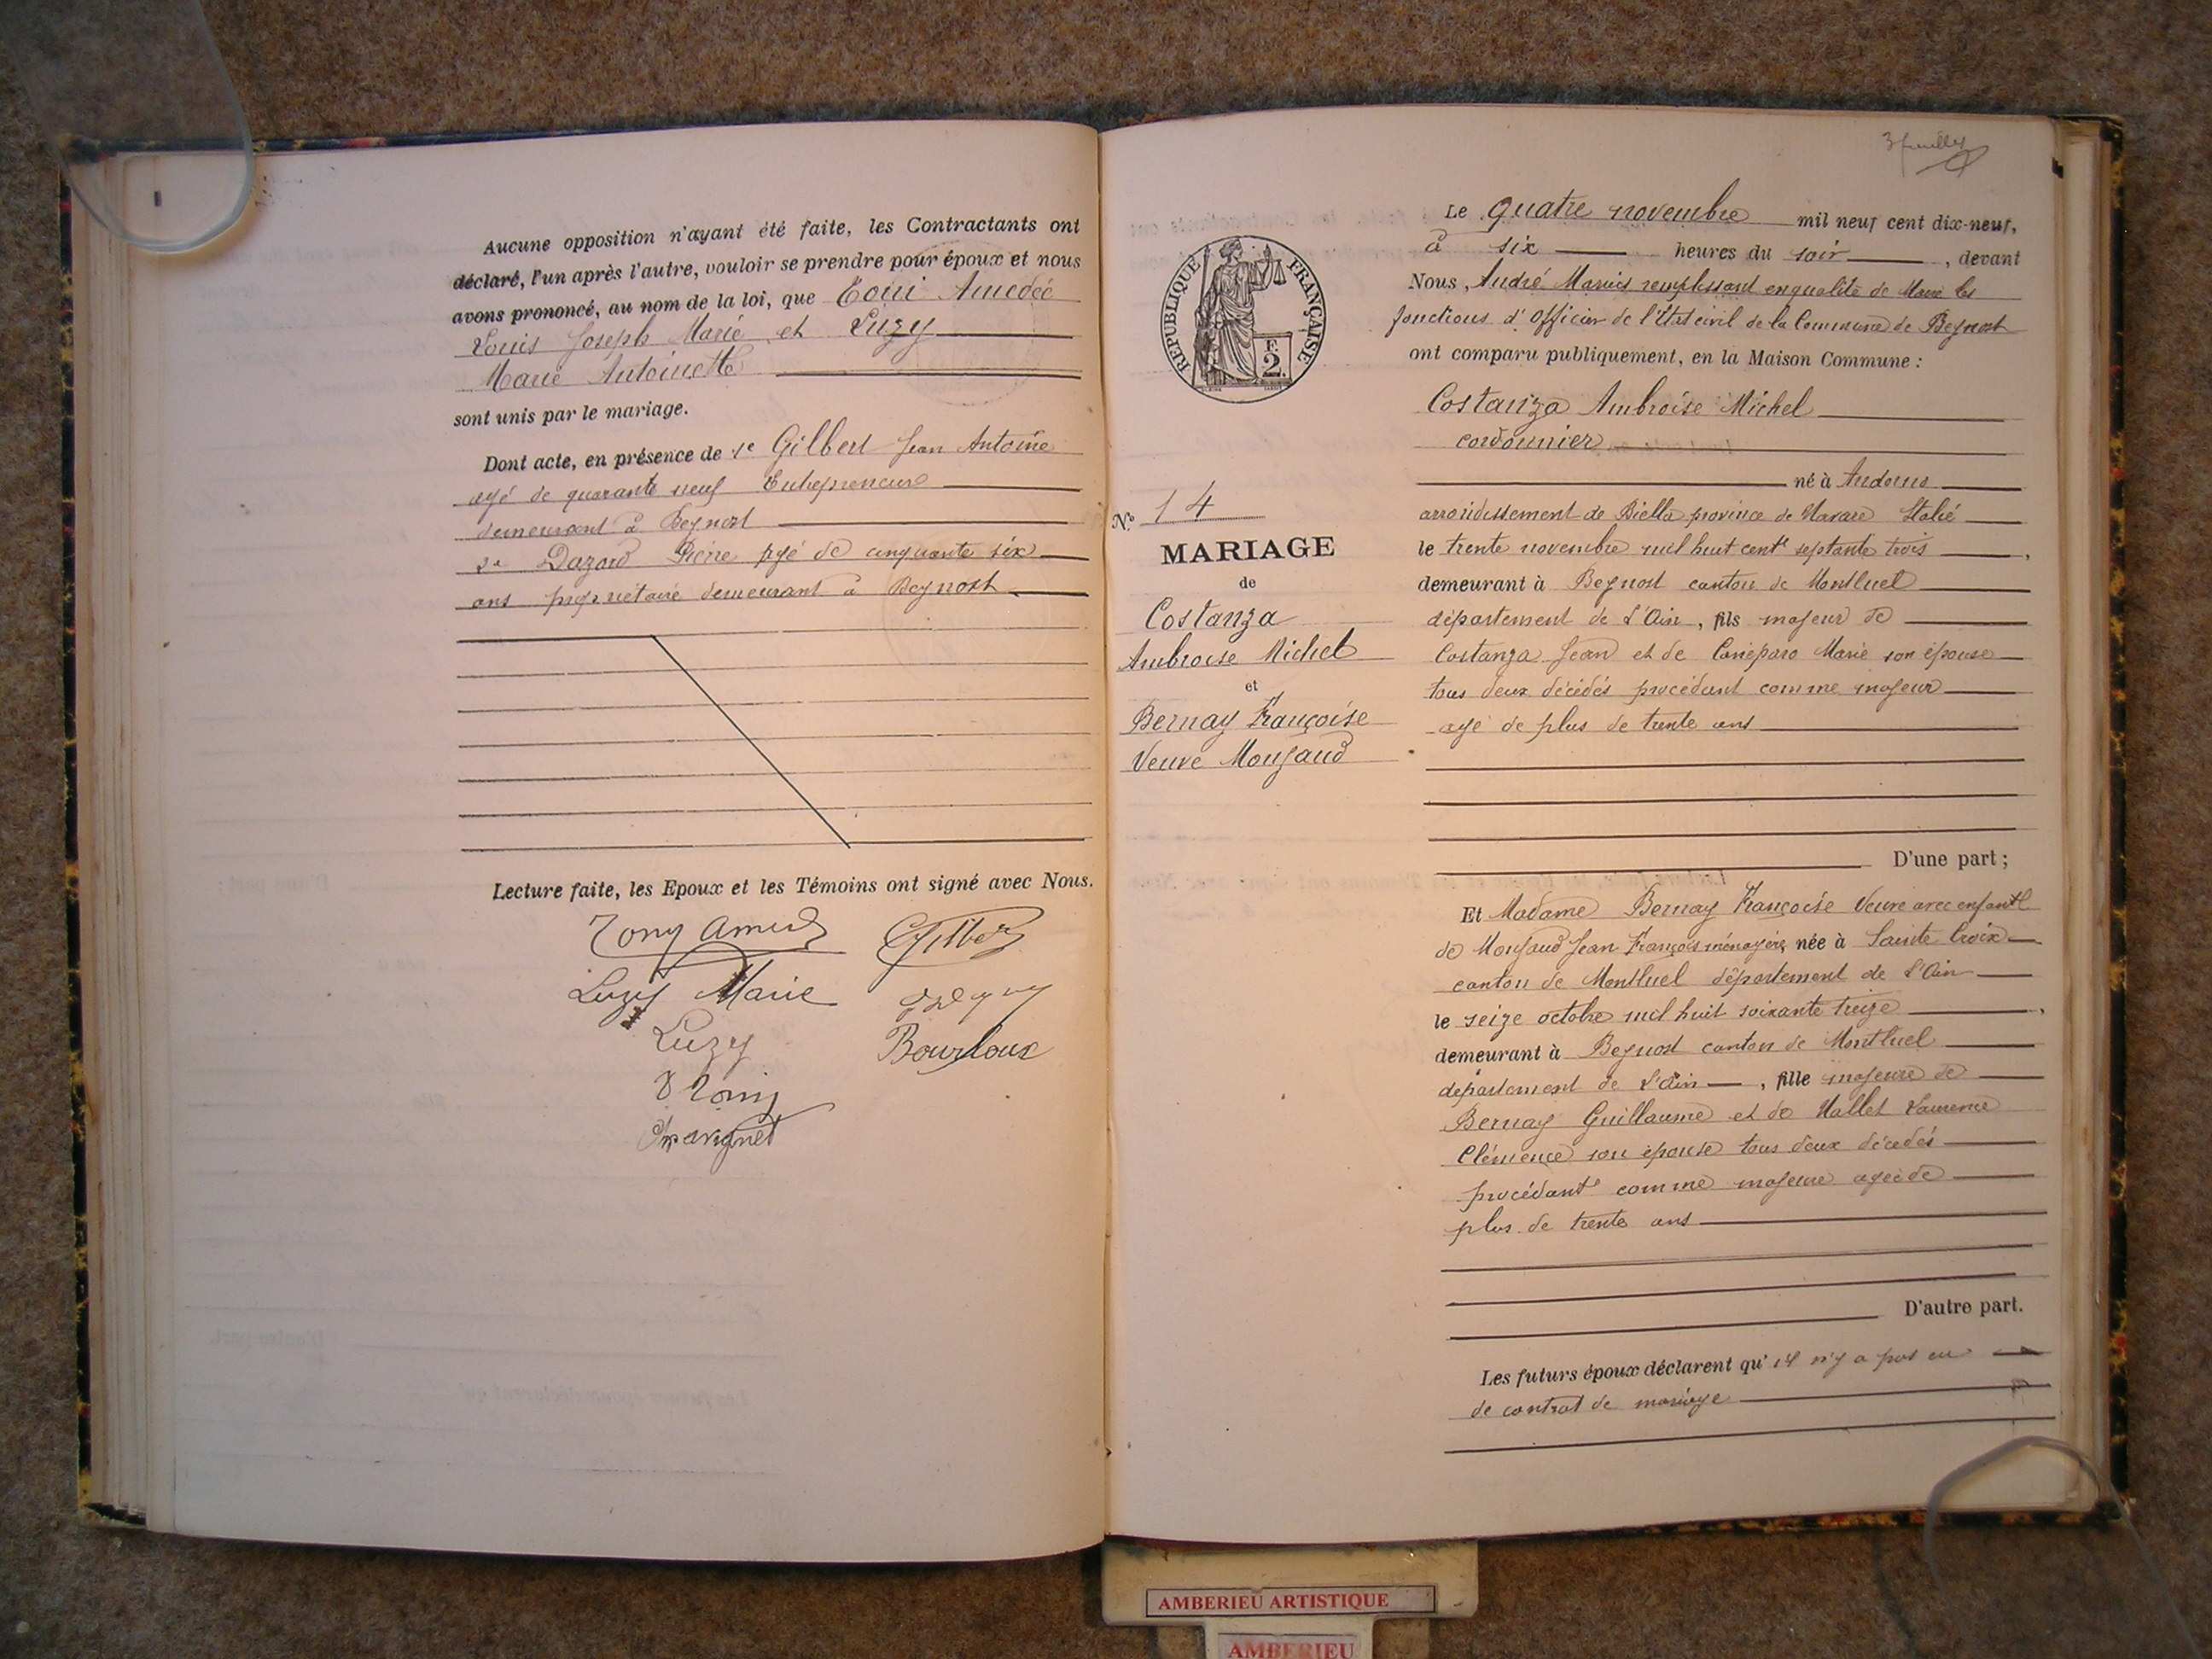 Aucune opposition n'ayant été faite, les Contractants ont
déclaré, l'un après l'autre, vouloir se prendre pour époux et nous
avons prononcé, au nom de la loi, que Toni Amédée
Louis Joseph Marie et Luzy
Marie Antoinette
sont unis par le mariage.
Dont acte, en présence de 1e Gilbert Jean Antoine
agé de quarante neuf Entrepreneur
demeurant à Beynost
2e Dazord Pierre agé de cinquante six
ans propriétaire demeurant à Beynost
Lecture faite, les Epoux et les Témoins ont signé avec Nous.
Tony Amédé
Gilbert
Luzy Marie
Luzy
Bourloux
3 feuilles
Le quatre novembre mil neuf cent dix-neuf,
à six heures du soir, devant
Nous, André Marius remplissant en qualité de Maire les
fonctions d'Officier de l'Etat civil de la Commune de Beynost
ont comparu publiquement, en la Maison Commune :
Costanza Ambroise Michel
cordonnier
né à Andorno
arrondissement de Biella province de Navare Italie
le trente novembre mil huit cent septante trois,
demeurant à Beynost canton de Montluel
département de l'Ain, fils majeur de
Costanza Jean et de Caneparo Marie son épouse
tous deux décédés procédant comme majeur
agé de plus de trente ans
D'une part ;
Et Madame Bernay Françoise Veuve avec enfants
de Monjaud Jean François ménagère, née à Sainte Croix
canton de Montluel département de l'Ain
le seize octobre mil huit soixante treize,
demeurant à Beynost canton de Montluel
département de l'Ain, fille majeure de
Bernay Guillaume et de Hallet Laurence
Clémence son épouse tous deux décédés
procédant comme majeure agée de
plus de trente ans
D'autre part.
Les futurs époux déclarent qu'il n'y a pas eu
de contrat de mariage
RÉPUBLIQUE FRANÇAISE
F. 2.
No 14
MARIAGE
de
Costanza
Ambroise Michel
et
Bernay Françoise
Veuve Monjaud
AMBERIEU ARTISTIQUE
AMBERIEU